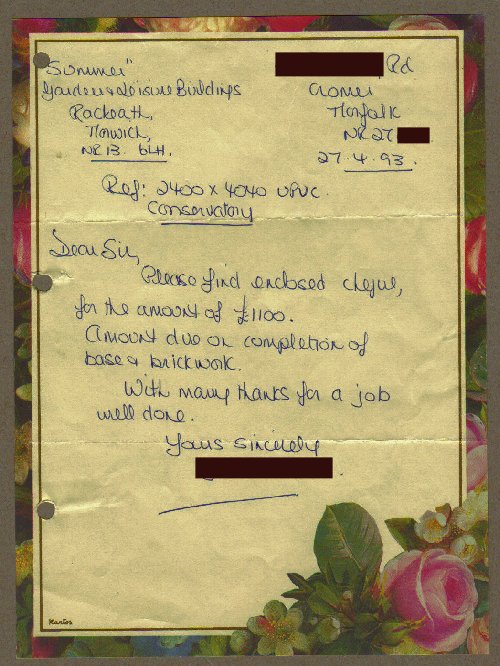 "Summer"
Garden & Leisure Buildings
Rackeath,
Norwich,
NR13. 6LH.
Rd
Cromer
Norfolk
NR27
27.4.93.
Ref: 2400 x 4040 UPVC.
Conservatory
Dear Sir,
Please find enclosed cheque,
for the amount of £1100.
Amount due on completion of
base & brickwork.
With many thanks for a job
well done.
Yours sincerely